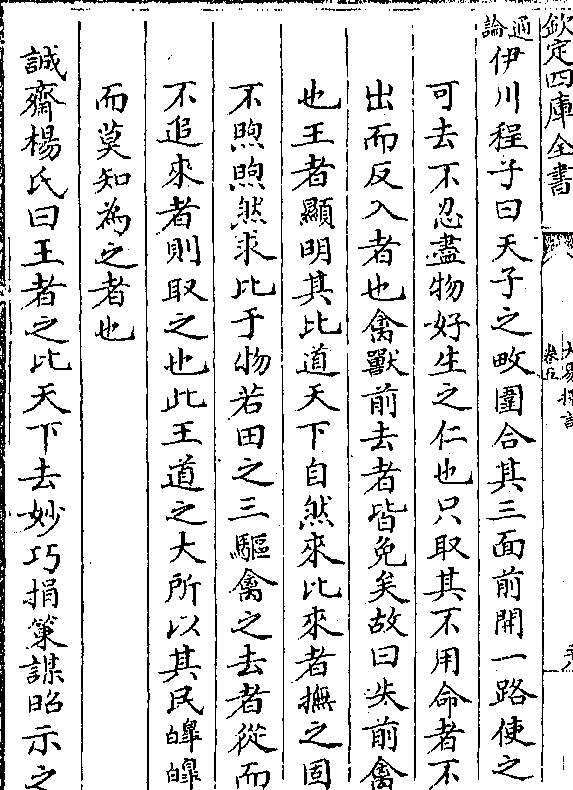 欽定四庫全書
大易擇言
卷五
通論伊川程子曰天子之畋圍合其三面前開一路使之
可去不忍盡物好生之仁也只取其不用命者不
出而反入者也禽獸前去者皆免矣故曰失前禽
也王者顯明其比道天下自然來比來者撫之固
不煦煦然求比于物若田之三驅禽之去者從而
不追來者則取之也此王道之大所以其民皥皥
而莫知為之者也
誠齋楊氏曰王者之比天下去妙巧捐策謀昭示之